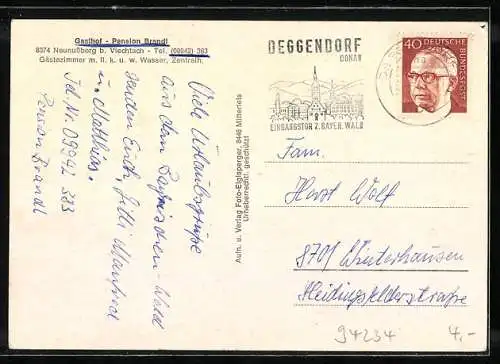 Gasthof - Pension Brandl
8374 Neunußberg b. Viechtach - Tel. (09942) 363
Gästezimmer m. fl. k. u. w. Wasser, Zentralh.
Viele Urlaubsgrüße
aus dem Bayrischen Wald
senden Euch, Gitti Manfred
u. Matthias.
Tel. Nr. 09942 383
Pension Brandl
Aufn. u. Verlag Foto-Eiglsperger, 8446 Mitterfels
Urheberrechtl. geschützt
DEGGENDORF
DONAU
EINGANGSTOR Z. BAYER. WALD
40
DEUTSCHE
BUNDESPOST
Fam.
Horst Wolf
8701 Winterhausen
Heidingsfelderstraße
94234
4,-